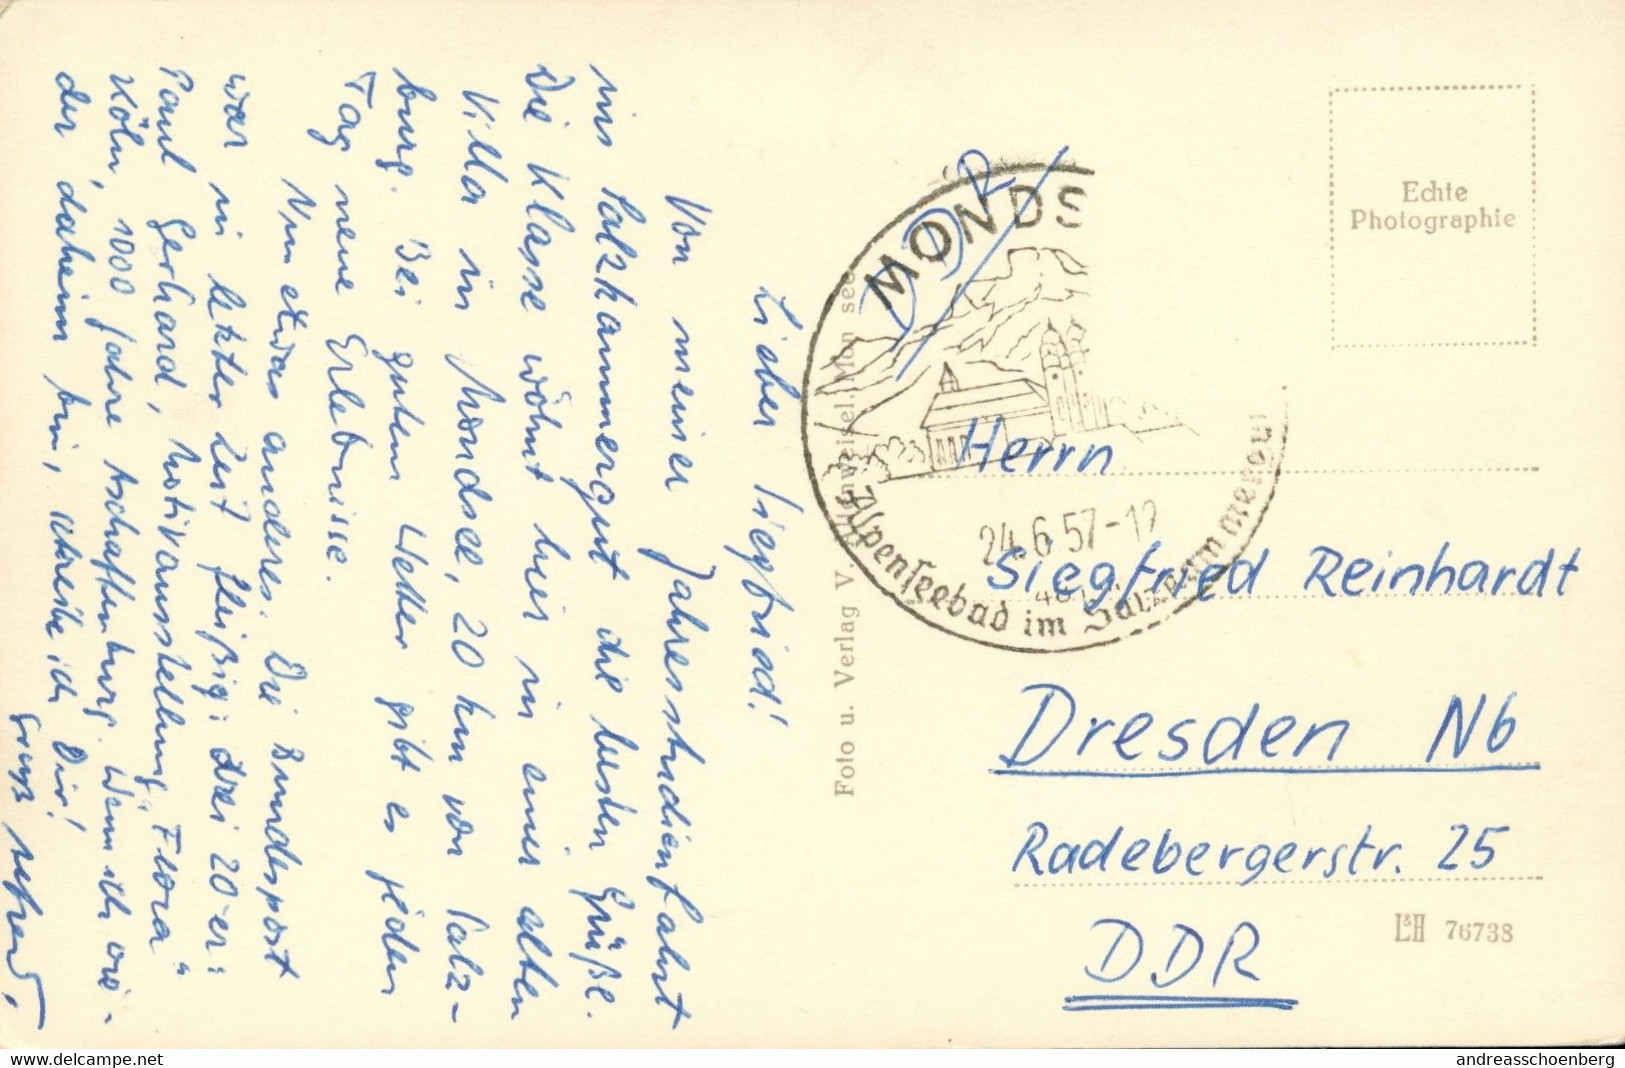 Lieber Siegfried!
Von meiner Jahresstudienfahrt
ins Salzkammergut die besten Grüße.
Die Klasse wohnt hier in einer alten
Villa in Mondsee, 20 km vor Salz-
burg. Bei gutem Wetter gibt es jeden
Tag neue Erlebnisse.
Nun etwas anderes. Die Bundespost
war in letzter Zeit fleißig: drei 20-er:
Paul Gerhard, Motivausstellung „Flora“
Köln, 1000 Jahre Aschaffenburg. Wenn ich wie-
der daheim bin, schreibe ich Dir!
Gruß
Foto u. Verlag V. see
DDR
MONDS
24.6.57-12
Alpenseebad im Salzkammergut
Echte
Photographie
Herrn
Siegfried Reinhardt
Dresden N6
Radebergerstr. 25
DDR
L&H 76738
www.delcampe.net
andreasschoenberg